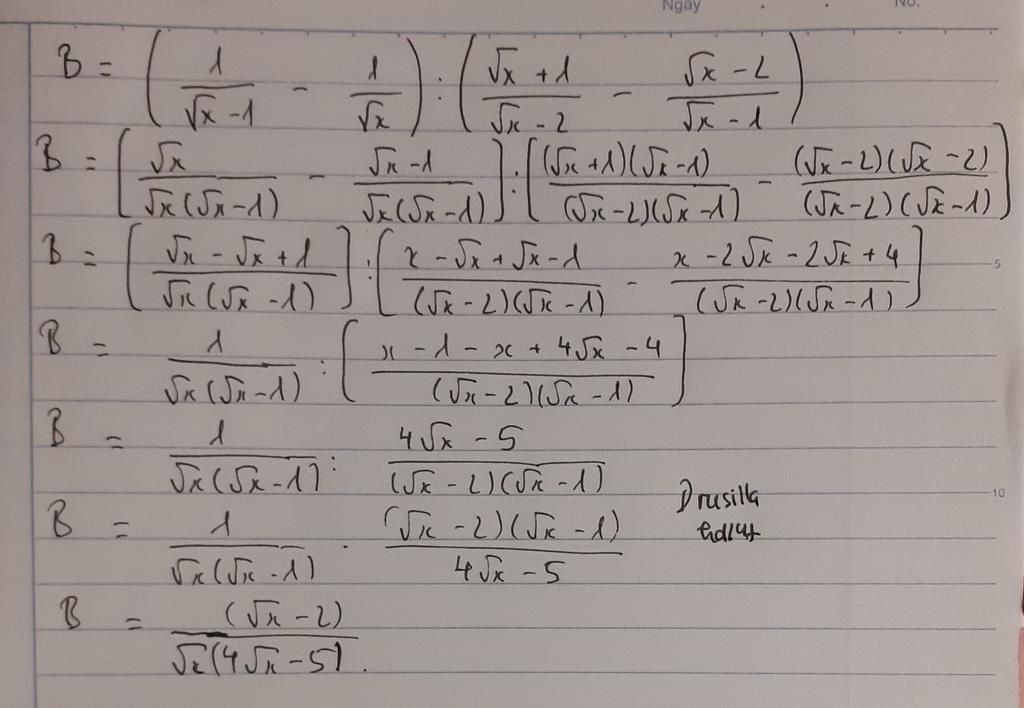 Ngay . . No.
B = ( 1/(√x - 1) - 1/√x ) : ( (√x + 1)/(√x - 2) - (√x - 2)/(√x - 1) )
B = [ √x/(√x(√x - 1)) - (√x - 1)/(√x(√x - 1)) ] : [ ((√x + 1)(√x - 1))/((√x - 2)(√x - 1)) - ((√x - 2)(√x - 2))/((√x - 2)(√x - 1)) ]
B = [ (√x - √x + 1)/(√x(√x - 1)) ] : [ (x - √x + √x - 1)/((√x - 2)(√x - 1)) - (x - 2√x - 2√x + 4)/((√x - 2)(√x - 1)) ]
5
B = 1/(√x(√x - 1)) : [ (x - 1 - x + 4√x - 4)/((√x - 2)(√x - 1)) ]
B = 1/(√x(√x - 1)) : (4√x - 5)/((√x - 2)(√x - 1))
Drusilla
10
B = 1/(√x(√x - 1)) . ((√x - 2)(√x - 1))/(4√x - 5)
B = (√x - 2)/(√x(4√x - 5)) .